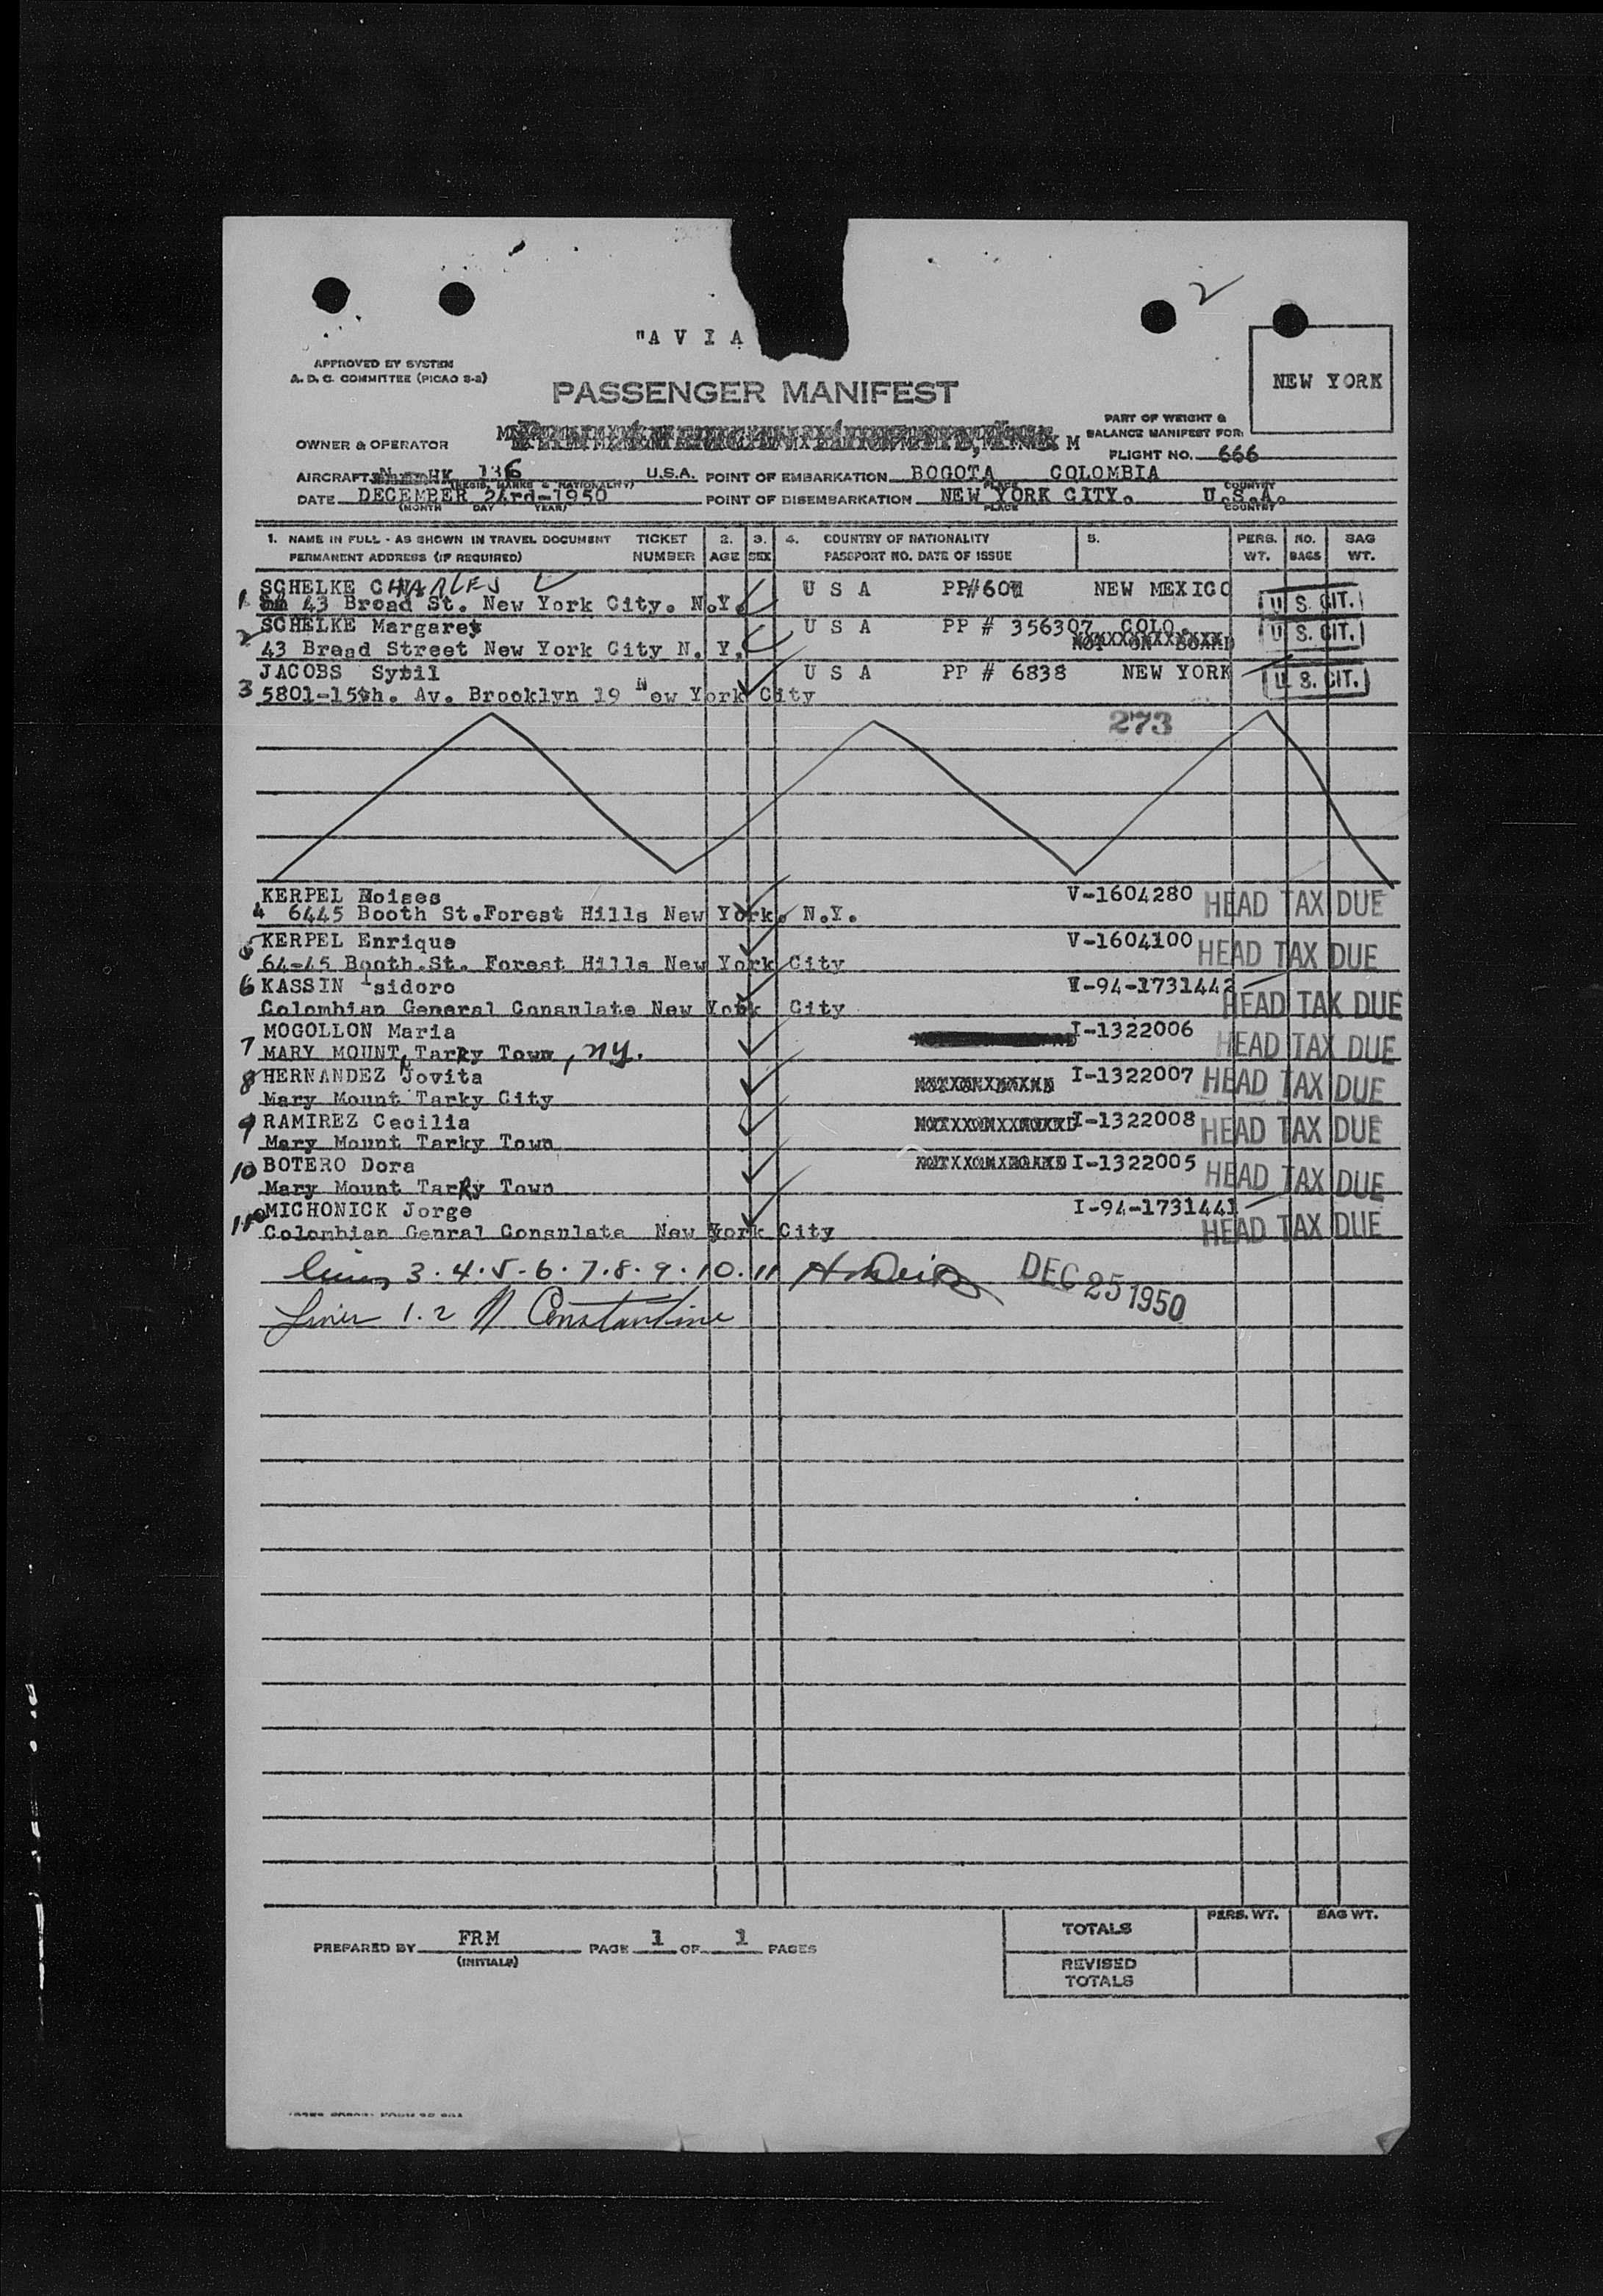 2
"A V I A
APPROVED BY SYSTEM
A. D. C. COMMITTEE (PICAO S-2)
NEW YORK
PASSENGER MANIFEST
PART OF WEIGHT &
BALANCE MANIFEST FOR:
OWNER & OPERATOR
FLIGHT NO. 666
AIRCRAFT HK 136 U.S.A. POINT OF EMBARKATION BOGOTA COLOMBIA
(REGIS. MARKS & NATIONALITY) PLACE COUNTRY
DATE DECEMBER 24rd-1950 POINT OF DISEMBARKATION NEW YORK CITY. U.S.A.
(MONTH DAY YEAR) PLACE COUNTRY
1. NAME IN FULL - AS SHOWN IN TRAVEL DOCUMENT TICKET 2. 3. 4. COUNTRY OF NATIONALITY 5. PERS. NO. BAG
PERMANENT ADDRESS (IF REQUIRED) NUMBER AGE SEX PASSPORT NO. DATE OF ISSUE WT. BAGS WT.
SCHELKE CHARLES U S A PP#607 NEW MEXICO
1 43 Broad St. New York City. N.Y. U S. CIT.
SCHELKE Margaret U S A PP # 356307 COLO
2 43 Broad Street New York City N. Y. NOT ON BOARD U S. CIT.
JACOBS Sybil U S A PP # 6838 NEW YORK
3 5801-15th. Av. Brooklyn 19 New York City U. S. CIT.
273
KERPEL Moises V-1604280 HEAD TAX DUE
4 6445 Booth St.Forest Hills New York. N.Y.
5 KERPEL Enrique V-1604100 HEAD TAX DUE
64-45 Booth.St. Forest Hills New York City
6 KASSIN Isidoro I-94-1731442 HEAD TAX DUE
Colombian General Consulate New York City
MOGOLLON Maria I-1322006 HEAD TAX DUE
7 MARY MOUNT, Tarky Town, N.Y.
8 HERNANDEZ Jovita I-1322007 HEAD TAX DUE
Mary Mount Tarky City
9 RAMIREZ Cecilia I-1322008 HEAD TAX DUE
Mary Mount Tarky Town
10 BOTERO Dora I-1322005 HEAD TAX DUE
Mary Mount Tarky Town
11 MICHONICK Jorge I-94-1731441 HEAD TAX DUE
Colombian Genral Consulate New York City
lines 3.4.5-6.7.8.9.10.11 DEC 25 1950
Lines 1.2 Constantine
PREPARED BY FRM PAGE 1 OF 1 PAGES
(INITIALS)
TOTALS PERS. WT. BAG WT.
REVISED
TOTALS